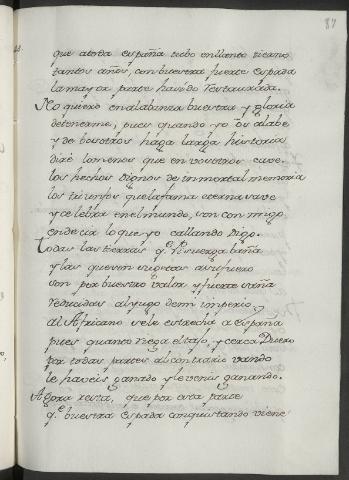 87
que atoda españa tubo en llanto tierno
tantos años, con buestra fuerte espada
la mayor parte haveis restaurada.
No quiero en alabanza buestra y gloria
detenerme, pues quando yo os alabe
y de bosotros haga larga historia
diré lo menos que en vosotros cave.
los hechos dignos de inmortal memoria
los triunfos que la fama eterna save
y celebra en el mundo, son conmigo
en decir lo que yo callando digo.
Todas las tierras q.e Pisuerga baña
y las que ven sugetas a su fuero
son por buestro valor y fuerte saña
reducidas al yugo de mi imperio,
al Africano se le estrecha a España
pues quanto riega el tajo, y cerca Duero
por todas partes al contrario vando
le haveis ganado y le venis ganando.
Agora resta, que por esta parte
q.e buestra espada conquistando viene